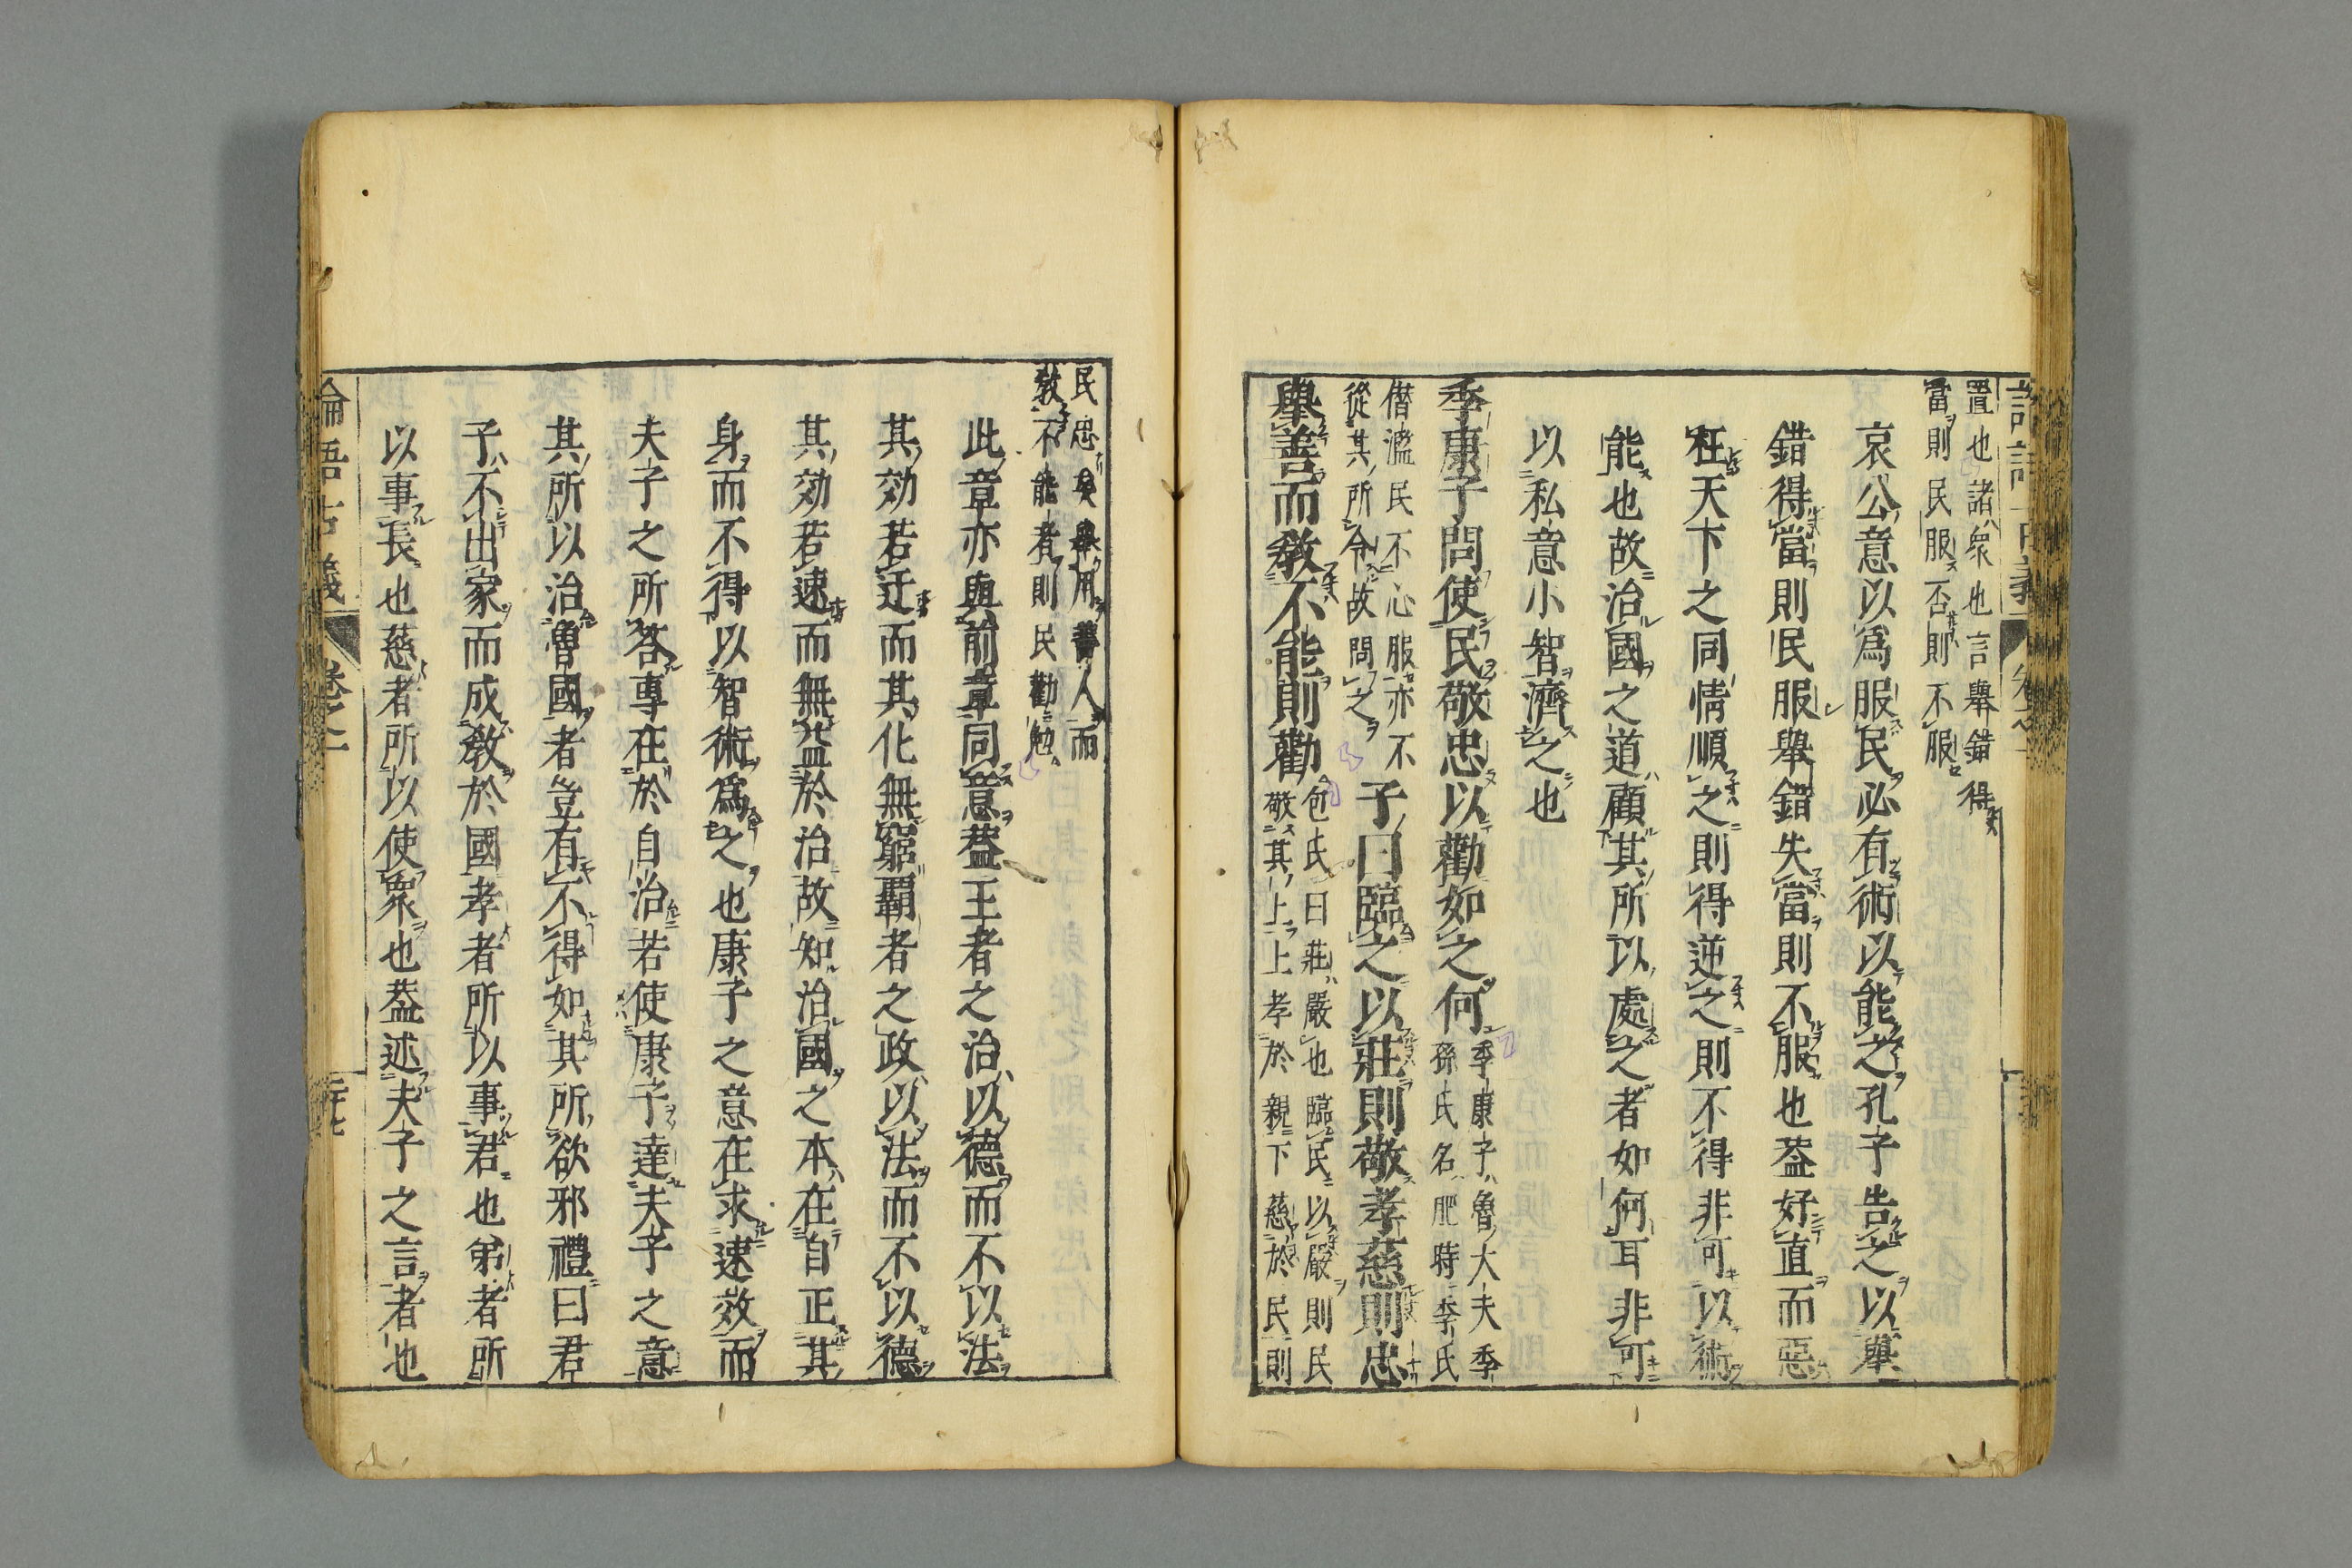 置也諸衆也言舉錯得
當則民服否則不服
哀公意以爲服民必有術以能之孔子告之以舉
錯得當則民服舉錯失當則不服也葢好直而惡
枉天下之同情順之則得逆之則不得非可以術
能也故治國之道顧其所以處之者如何耳非可
以私意小智濟之也
季康子問使民敬忠以勸如之何
季康子魯大夫季
孫氏名肥時季氏
僣濫民不心服亦不
從其所令故問之
子曰臨之以莊則敬孝慈則忠
舉善而敎不能則勸
包氏曰莊嚴也臨民以嚴則民
敬其上上孝於親下慈於民則
民忠矣舉用善人而
敎不能者則民勸勉
此章亦與前章同意葢王者之治以德而不以法
其効若迂而其化無窮覇者之政以法而不以德
其効若速而無益於治故知治國之本在自正其
身而不得以智術爲之也康子之意在求速效而
夫子之所答專在於自治若使康子達夫子之意
其所以治魯國者豈有不得如其所欲邪禮曰君
子不出家而成敎於國孝者所以事君也弟者所
以事長也慈者所以使衆也葢述夫子之言者也
論語古義 卷之二